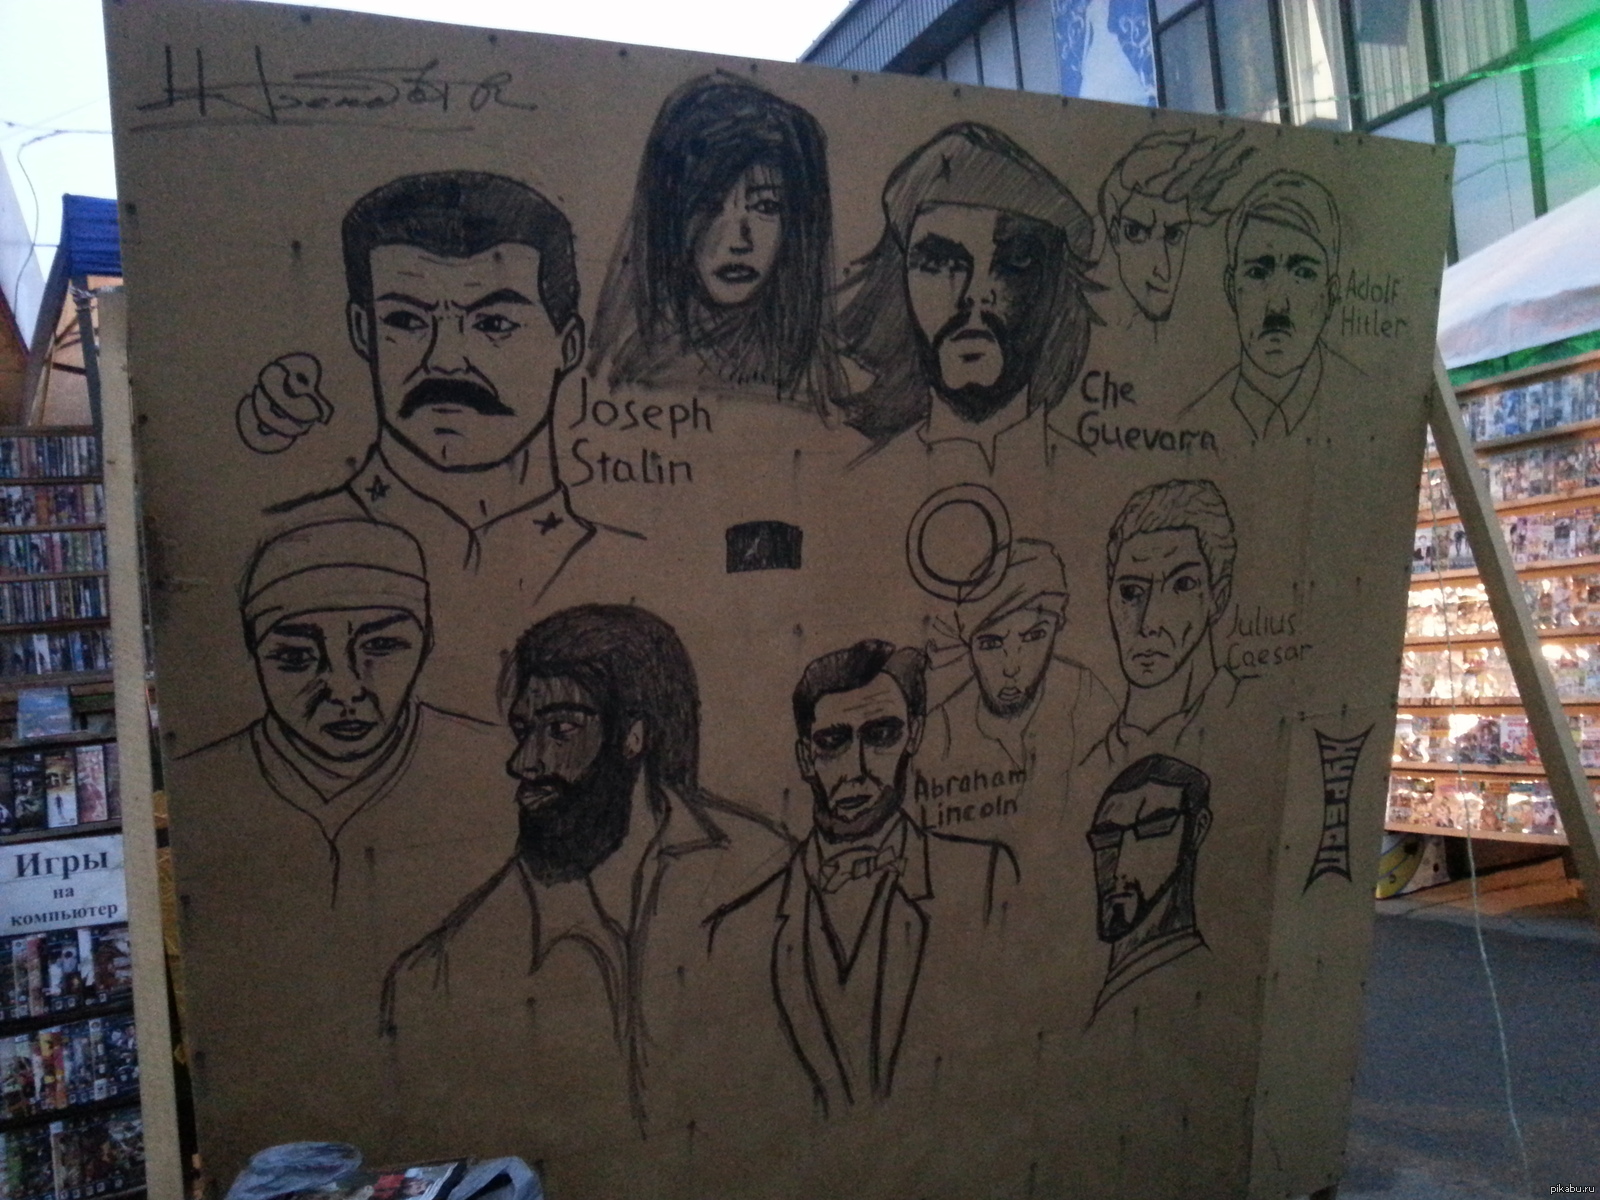 Joseph
Stalin
Che
Guevara
Adolf
Hitler
Julius
Caesar
Abraham
Lincoln
Игры
на
компьютер
pikabu.ru